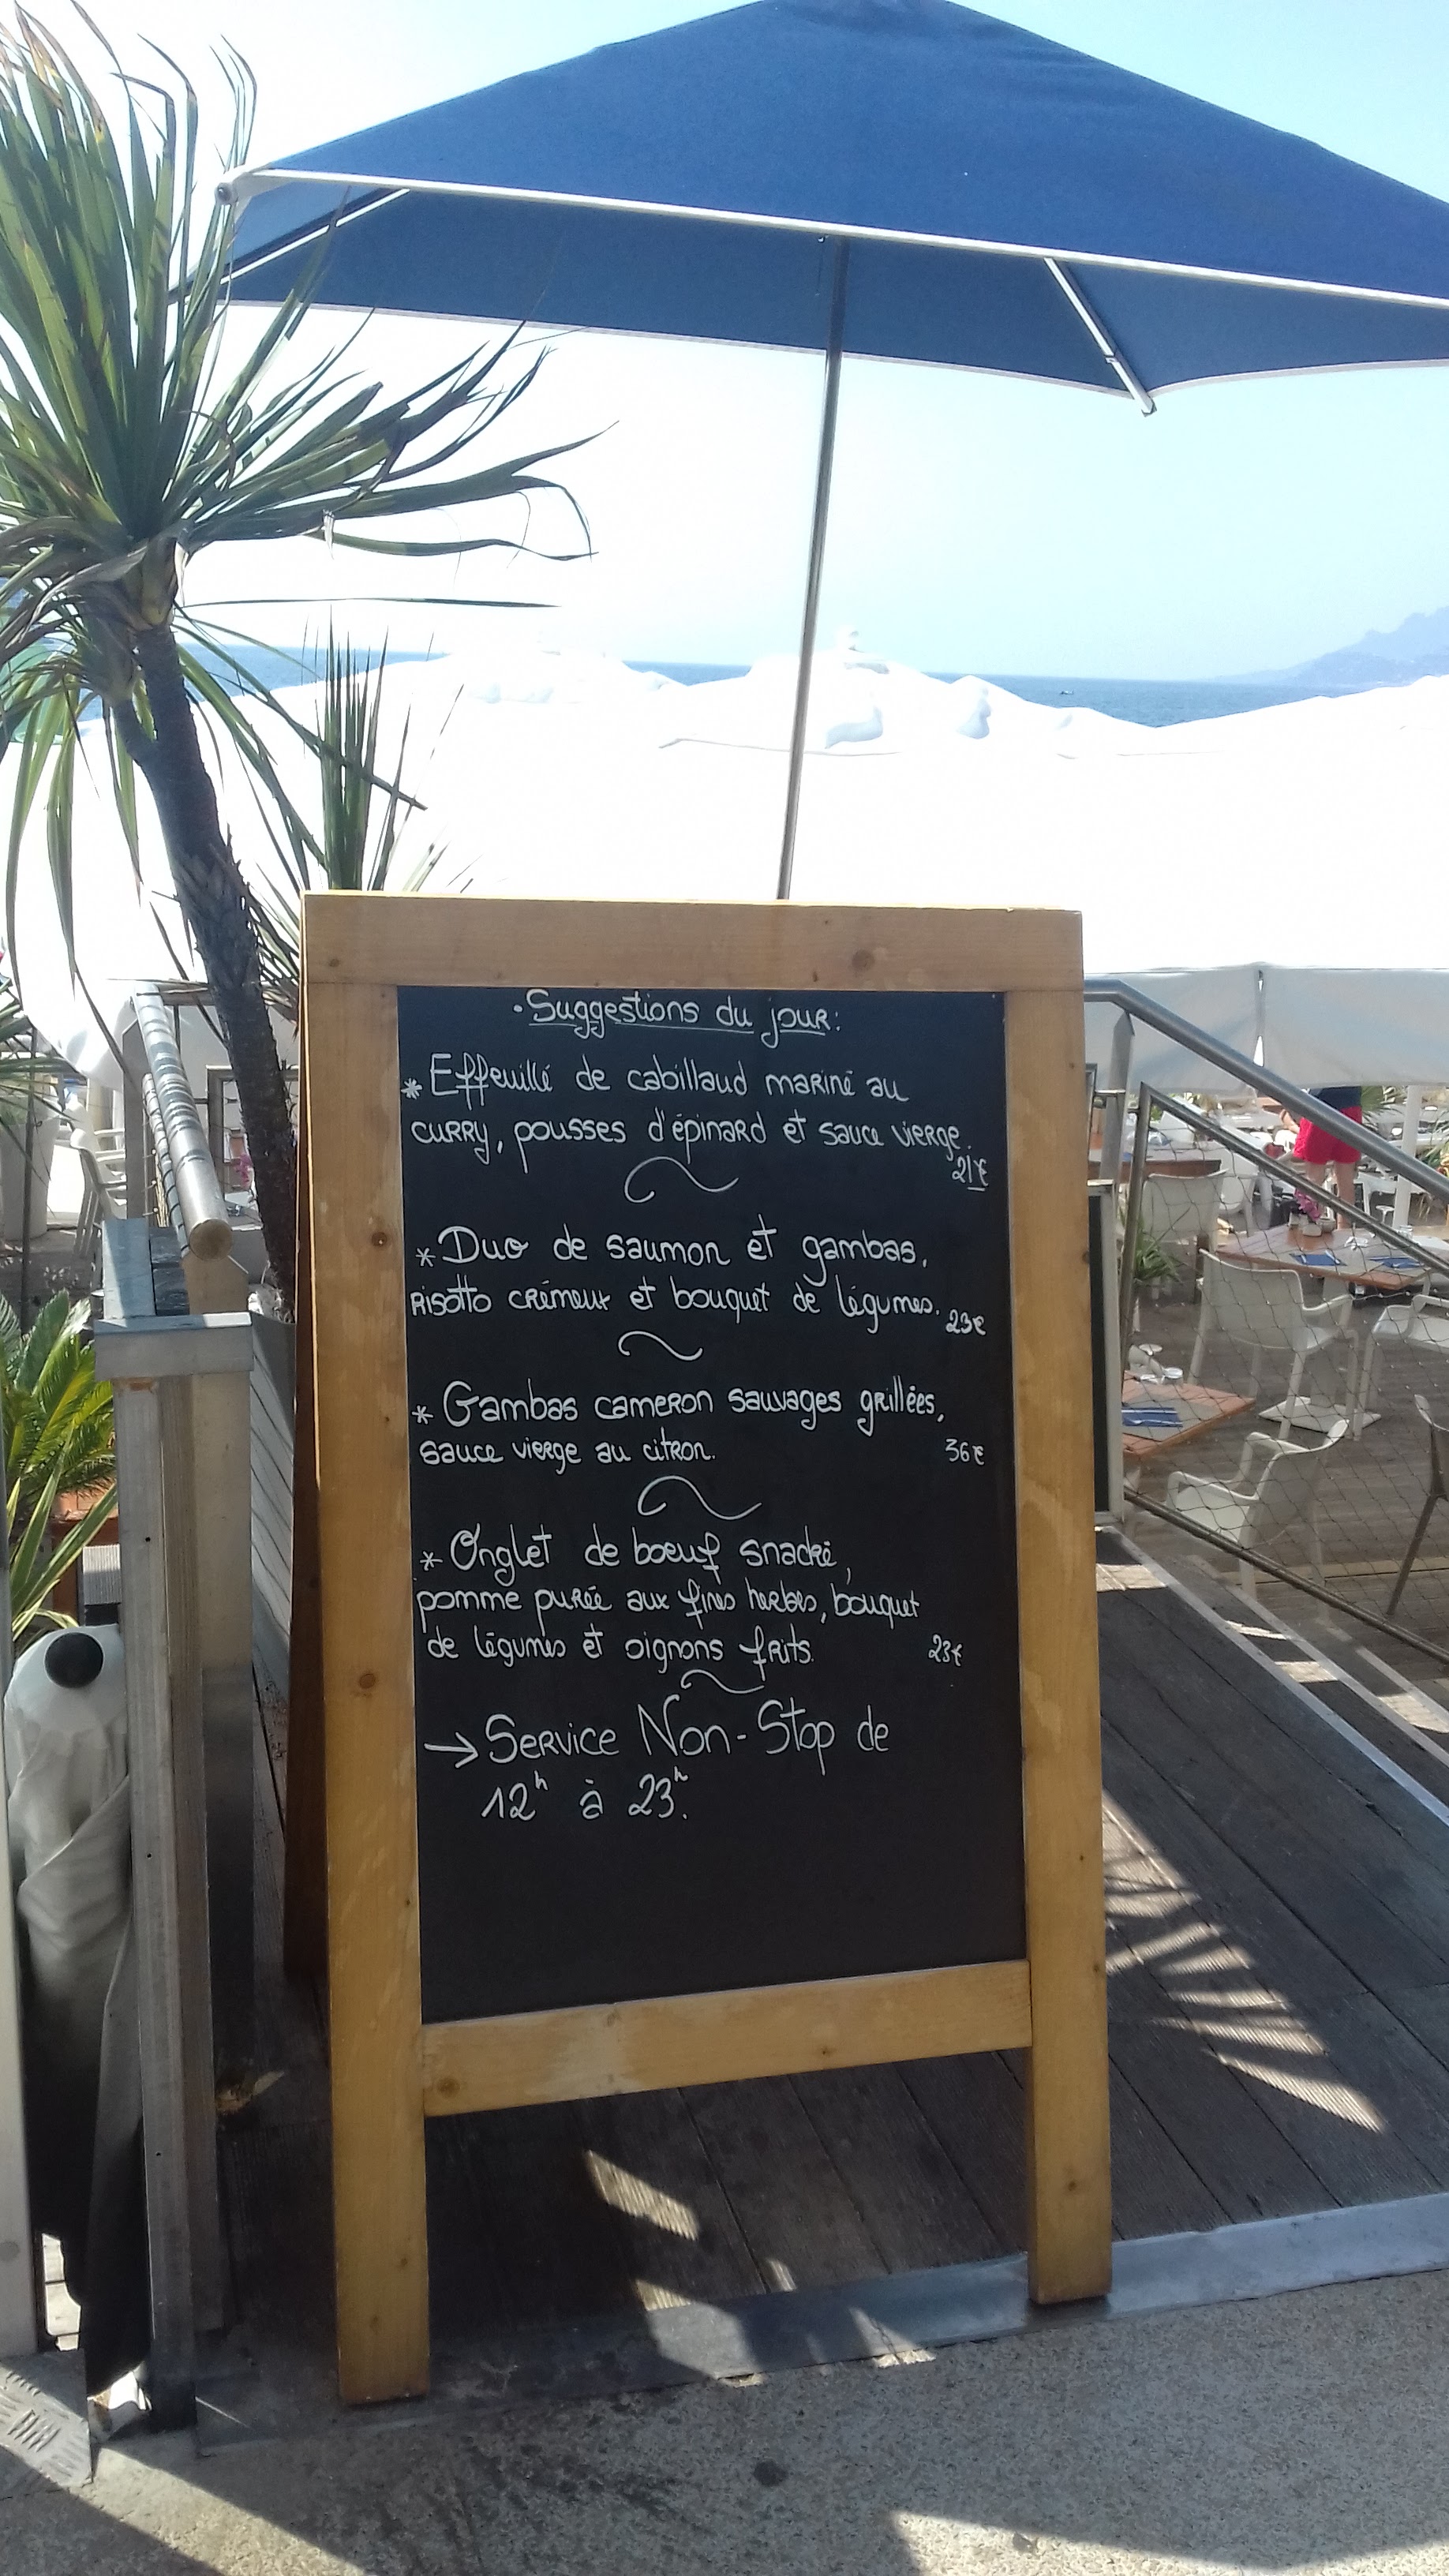 • Suggestions du jour:
* Effeuillé de cabillaud mariné au
curry, pousses d'épinard et sauce vierge.
21€
* Duo de saumon et gambas,
risotto crémeux et bouquet de légumes. 23€
* Gambas cameron sauvages grillées,
sauce vierge au citron. 36€
* Onglet de boeuf snacké,
pomme purée aux fines herbes, bouquet
de légumes et oignons frits. 23€
→ Service Non-Stop de
12h à 23h.